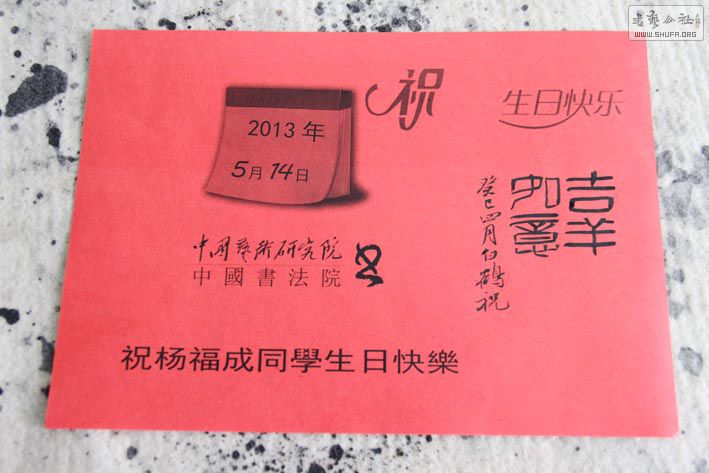 書藝公社
WWW.SHUFA.ORG
祝
生日快乐
2013 年
5月 14日
吉羊
如意
癸巳四月白鶴祝
中国艺术研究院
中國書法院
祝杨福成同學生日快樂